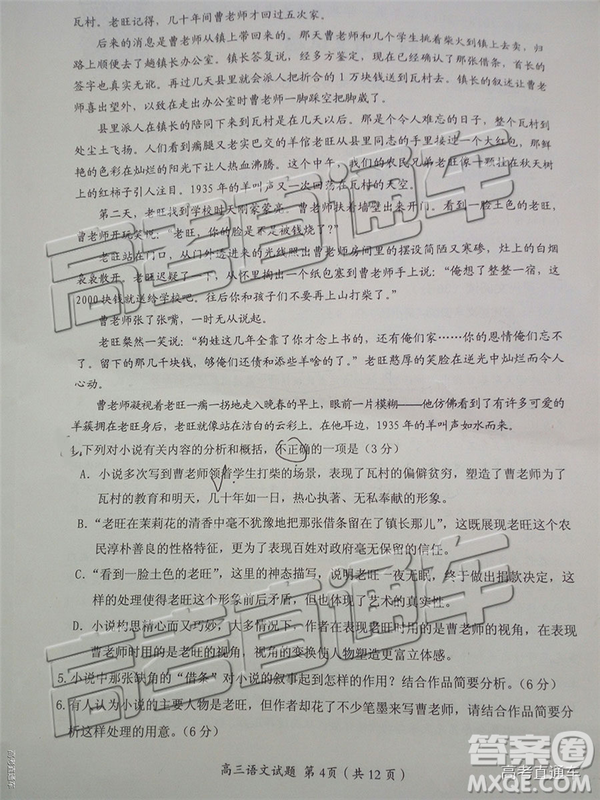 瓦村。老旺记得，几十年间曹老师才回过五次家。
后来的消息是曹老师从镇上带回来的。那天曹老师和几个学生挑着柴火到镇上去卖，归
路上顺便去了趟镇长办公室。镇长答复说，经多方鉴定，现在已经确认了那张借条，首长的
签字也真实无疑。再过几天县里就会把折合的1万块钱送到瓦村去。镇长的叙述让曹老
师喜出望外，以致在走出办公室时曹老师一脚踩空把脚崴了。
县里派人在镇长的陪同下来到瓦村是在六天以后。那是个令人难忘的日子，整个瓦村到
处尘土飞扬。人们看到瘸腿又老实巴交的羊倌老旺从县里同志的手里接过一个大红包，那鲜
艳的色彩在灿烂的阳光下让人热血沸腾。这个时候，我们的农民兄弟老旺像一颗挂在秋天树
上的红柿子引人注目。1935年的羊叫声又一次回荡在瓦村的天空。
第二天，老旺找到学校时天刚蒙蒙亮。曹老师扶着墙壁出来开门。看到一脸土色的老旺，
曹老师开玩笑说：“老旺，你的脸是不是被钱烧了？”
老旺站在门口，从门外透进来的光线照出曹老师房间里的摆设简陋又寒碜，灶上的白烟
袅袅散开。老旺迟疑了一下，从怀里掏出一个纸包塞到曹老师手上说：“俺想了整整一宿，这
2000块钱就送给学校吧。往后你和孩子们不要再上山打柴了。”
曹老师张了张嘴，一时无从说起。
老旺粲然一笑说：“狗娃这几年全靠了你才念上书、有出息的呢……你的恩情俺们忘不
了。留下的那几千块钱，够俺们还债和添些羊啥的了。”老旺憨厚的笑脸在逆光中灿烂而令人
心动。
曹老师凝视着老旺一瘸一拐地走入晚春的早上，眼前一片模糊——他仿佛看到了有许多可爱的
羊簇拥在老旺左右，如浮动在湛蓝天空的洁白的云彩上。在他耳边，1935年的羊叫声如水而来。
4.下列对小说有关内容的分析和概括，不正确的一项是（3分）
A．小说多次写到曹老师领着学生打柴的场景，表现了瓦村的偏僻贫穷，塑造了曹老师为了
瓦村的教育和明天，几十年如一日，热心执著、无私奉献的形象。
B．“老旺在茉莉花的清香中毫不犹豫地把那张借条留在了镇长那儿”，这既展现老旺这个农
民淳朴善良的性格特征，更为了表现百姓对政府毫无保留的信任。
C．“看到一脸土色的老旺”，这里的神态描写，说明老旺一夜无眠，终于做出了捐款决定，这
样的处理使得老旺这个形象前后矛盾，但也体现了艺术的真实性。
D．小说构思精心而又巧妙，大多情况下，作者在表现老旺时用的是曹老师的视角，在表现曹
老师时用的是老旺的视角，视角的变换使人物塑造更为成功。
5．小说中那张缺角的“借条”对小说的叙事起到怎样的作用？结合作品简要分析。（6分）
6．有人认为小说的主要人物是老旺，但作者却花了不少笔墨来写曹老师，请结合作品简要分析这
样处理的用意。（6分）
高三语文试题 第4页（共12页）
高考直通车
高考直通车
答案卷
高考直通车
MXQE.COM